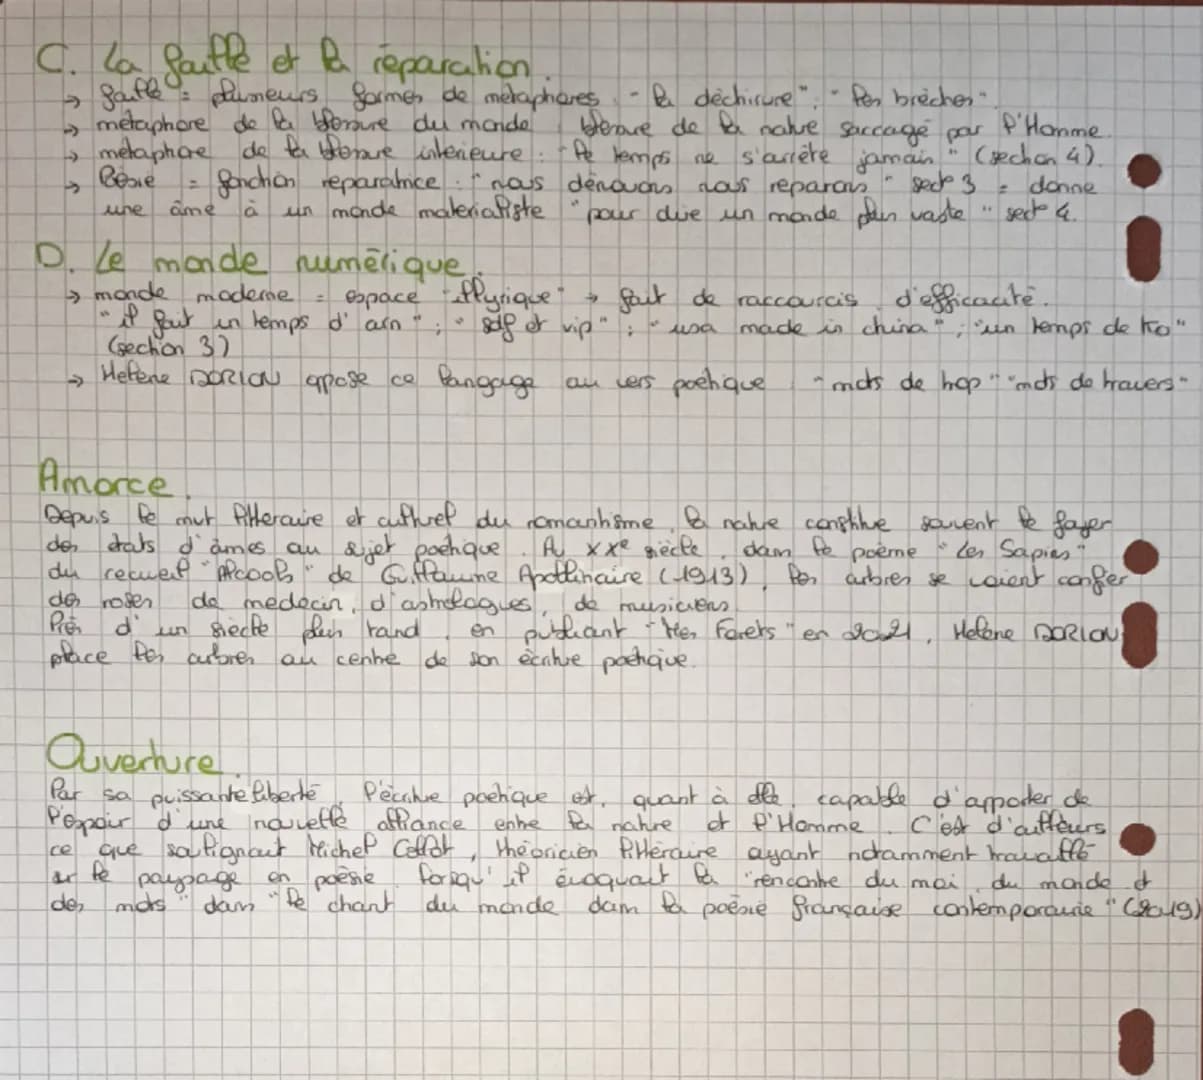 C. La faille et la réparation.
→ faille = plusieurs formes de métaphores "la déchirure", "les brèches".
→ métaphore de la blessure du monde, blessure de la nature saccagé par l'Homme.
→ métaphore de la blessure intérieure : "le temps ne s'arrête jamain" (section 4).
→ Poésie = fonction réparatrice : "nous dénouons nous reparons" secto 3 = donne
une âme à un monde matérialiste "pour dire un monde plus vaste" secto 4.
D. Le monde numérique.
→ monde moderne = espace "illyrique" → fait de raccourcis, d'efficacité.
"il fait un temps d'arn" ; "sdf et vip" ; "usa made in china" ; "un temps de ko"
(section 3)
→ Helene DORION oppose ce langage au vers poétique "mots de trop" "mots de travers"
Amorce.
Depuis le mvt littéraire et culturel du romantisme, la nature constitue souvent le foyer
des états d'âmes au sujet poétique. Au XXe siècle, dans le poème "Les Sapins"
du recueil "Alcools" de Guillaume Apollinaire (1913), les arbres se voient confier
des roles de medecin, d'astrologues, de musiciens.
Près d'un siècle plus tard, en publiant "Mes Forets" en 2021, Helene DORION
place les arbres au centre de son écriture poétique.
Ouverture.
Par sa puissante liberté, l'écriture poétique est, quant à elle, capable d'apporter de
l'espoir d'une nouvelle alliance entre la nature et l'Homme. C'est d'ailleurs
ce que soulignait Michel Collot, théoricien littéraire ayant notamment travaillé
sur le paysage en poésie, lorsqu'il évoquait la "rencontre du moi, du monde et
des mots" dans "le chant du monde dans la poésie française contemporaine" (2019)